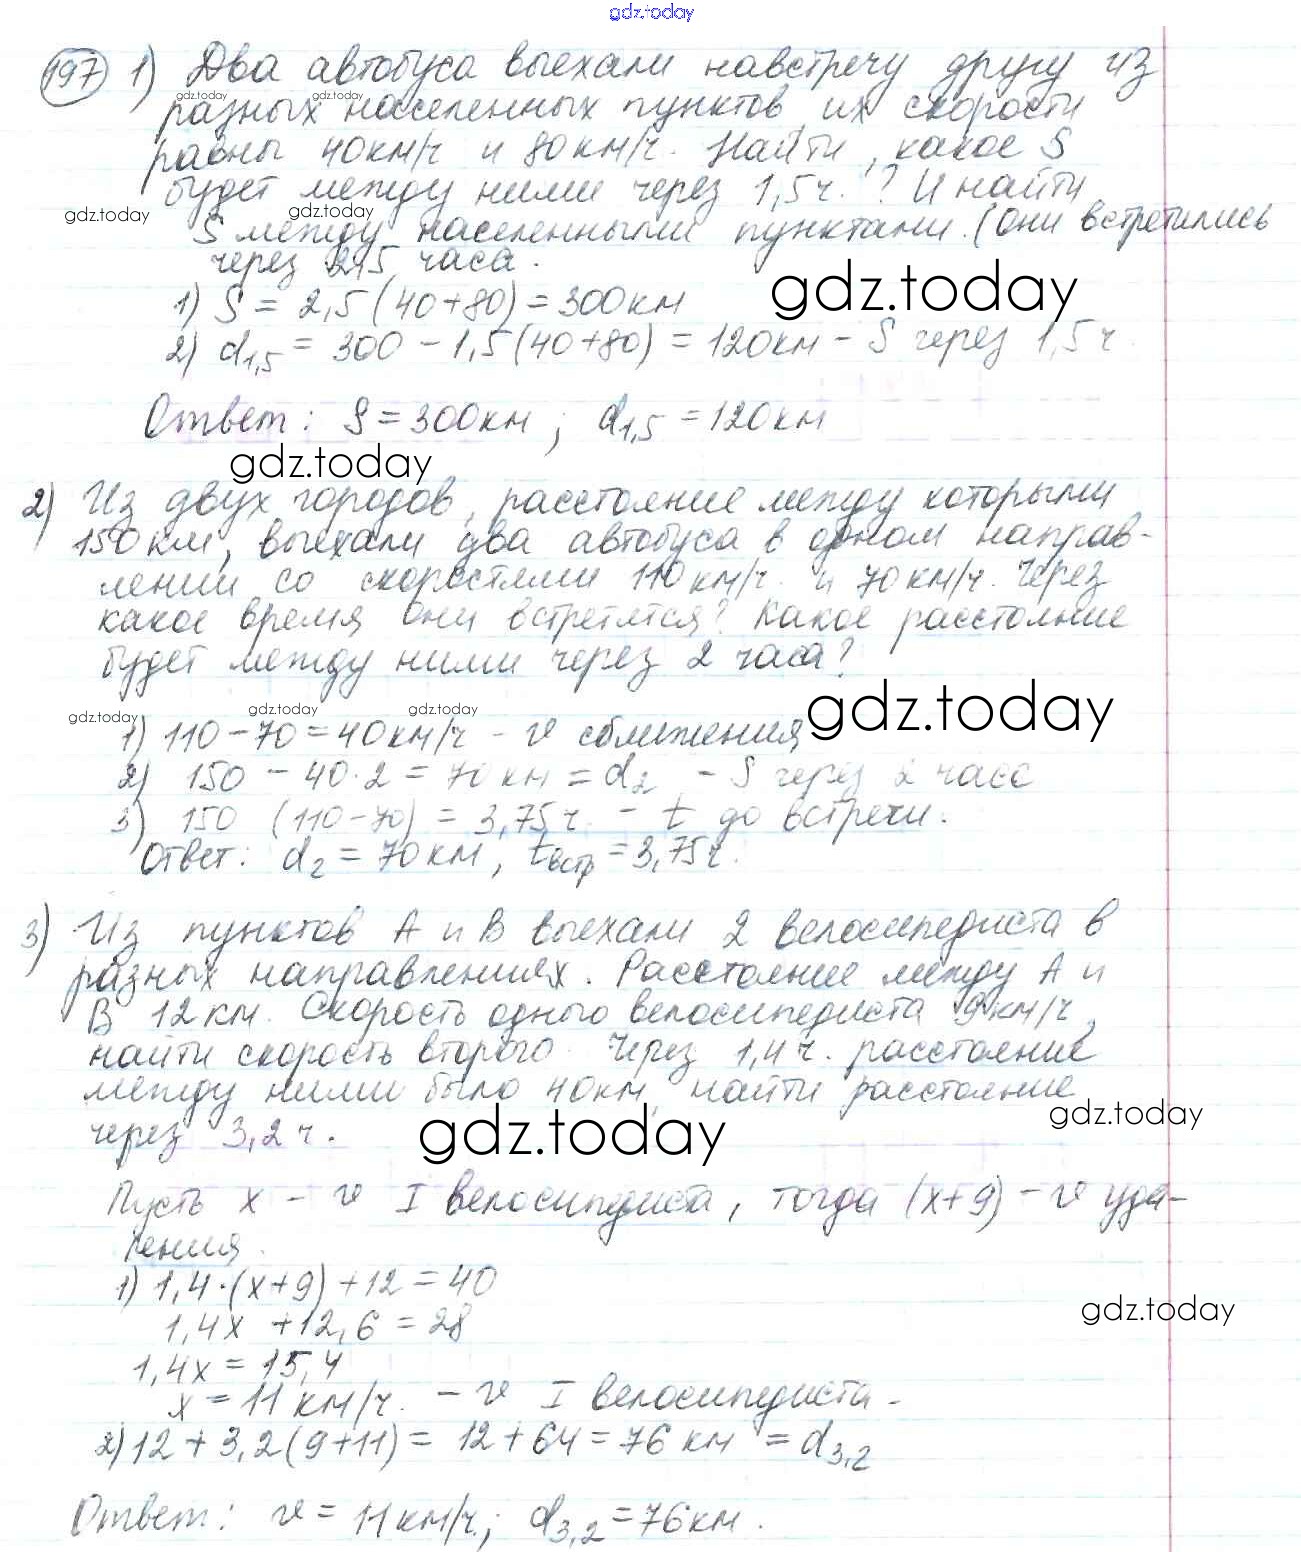 gdz.today
197 1) Два автобуса выехали навстречу другу из
gdz.today gdz.today
разных населенных пунктов, их скорости
равны 40км/ч и 80км/ч. Найти, какое S
будет между ними через 1,5ч.? И найти
gdz.today gdz.today
S между населенными пунктами. (они встретились
через 2,5 часа.
gdz.today
1) S = 2,5(40+80) = 300км
2) d1,5 = 300 - 1,5(40+80) = 120км - S через 1,5ч.
Ответ: S = 300км ; d1,5 = 120км
gdz.today
2) Из двух городов, расстояние между которыми
150км, выехали два автобуса в одном направ-
лении со скоростями 110км/ч. и 70км/ч. Через
какое время они встретятся? Какое расстояние
будет между ними через 2 часа?
gdz.today gdz.today gdz.today gdz.today
1) 110 - 70 = 40км/ч - v сближения
2) 150 - 40·2 = 70км = d2 - S через 2 часа
3) 150 (110-70) = 3,75ч. - t до встречи.
Ответ: d2 = 70км, tвстр = 3,75ч.
3) Из пунктов А и В выехали 2 велосипедиста в
разных направлениях. Расстояние между А и
В 12км. Скорость одного велосипедиста 9км/ч,
найти скорость второго. Через 1,4ч. расстояние
между ними было 40км, найти расстояние
gdz.today
через 3,2ч.
gdz.today
Пусть x - v I велосипедиста, тогда (x+9) - v уда-
ления.
1) 1,4·(x+9) + 12 = 40
gdz.today
1,4x + 12,6 = 28
1,4x = 15,4
x = 11км/ч. - v I велосипедиста.
2) 12 + 3,2(9+11) = 12 + 64 = 76км = d3,2
Ответ: v = 11км/ч; d3,2 = 76км.